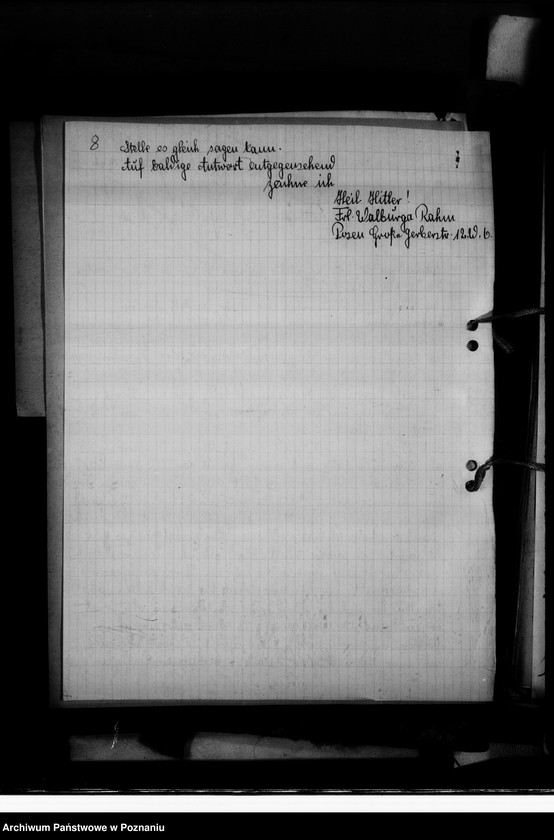 8 Stelle es gleich sagen kann.
Auf baldige Antwort entgegensehend
zeichne ich
Heil Hitler!
Frl. Walburga Rahm
Posen Große Gerberstr. 12 W. 6.
Archiwum Państwowe w Poznaniu